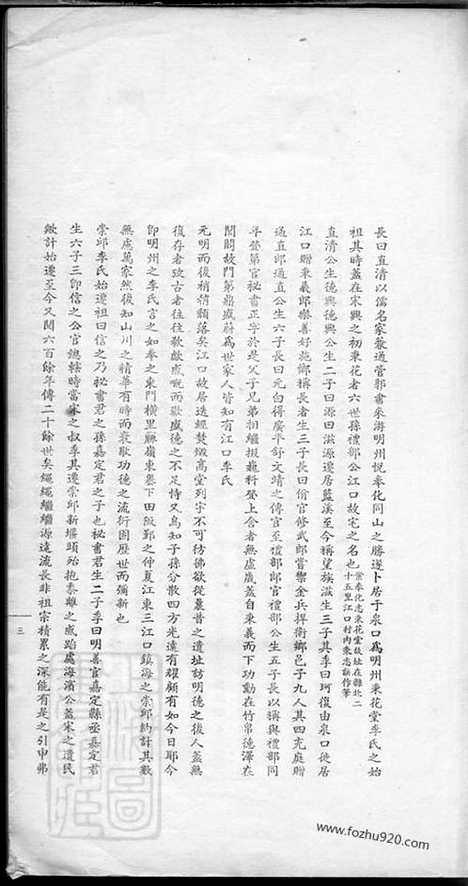 長曰直清以儒名家敷通管郭書來游明州悅奉化同山之勝遂卜居于泉口爲明州東花堂李氏之始
祖其時蓋在宋興之初東花者六世孫禮部公江口故宅之名也案奉化志東花堂故址在縣北二十五里江口村內東志訛作筆
直清公生德興德興公生二子曰源曰滋源遷居藍溪至今稱望族滋生三子其季曰珂復由泉口徙居
江口贈秉義郎樂善好施鄉稱長者生三子長曰偷官修武郎嘗禦金兵捍衛鄉邑子九人其四充庭贈
通直郎通直公生六子長曰元白得廣平舒文靖之傳官至禮部郎官禮部公生五子長以稱與禮部同
年登第官祕書正字於是父子兄弟相繼掇巍科登上舍者無慮歲蓋自秉義而下功勳在竹帛德澤在
閭閻故門第鼎盛蔚爲世家人皆知有江口李氏
元明而後稍稍頹落矣江口故居迭經焚燬高堂列宇不可彷彿欲從曩昔之遺址訪明德之後人蓋無
復存者攷古者往往欷歔感喟而歎盛德之不足恃又烏知子孫分散四方光遠有耀顧有如今日耶今
卽明州之李氏言之如奉之東門橫里縣嶺東皋下田阪鄞之仲夏江東三江口鎮海之崇邱約計其數
無慮萬家然後知山川之精華有時而衰歇功德之流衍固歷世而彌新也
崇邱李氏始遷祖曰信之乃祕書君之孫嘉定君之子也祕書君生二子季曰明善官嘉定縣丞嘉定君
生六子三卽信之公官總轄時當宋之叔季其遷崇邱新堰頭殆抱黍離之感蹈處海濱公蓋宋之遺民
歟計始遷至今又閱六百餘年傳二十餘世矣繩繩繼繼源遠流長非祖宗積累之深能有是之引申弗
三
www.fozhu920.com